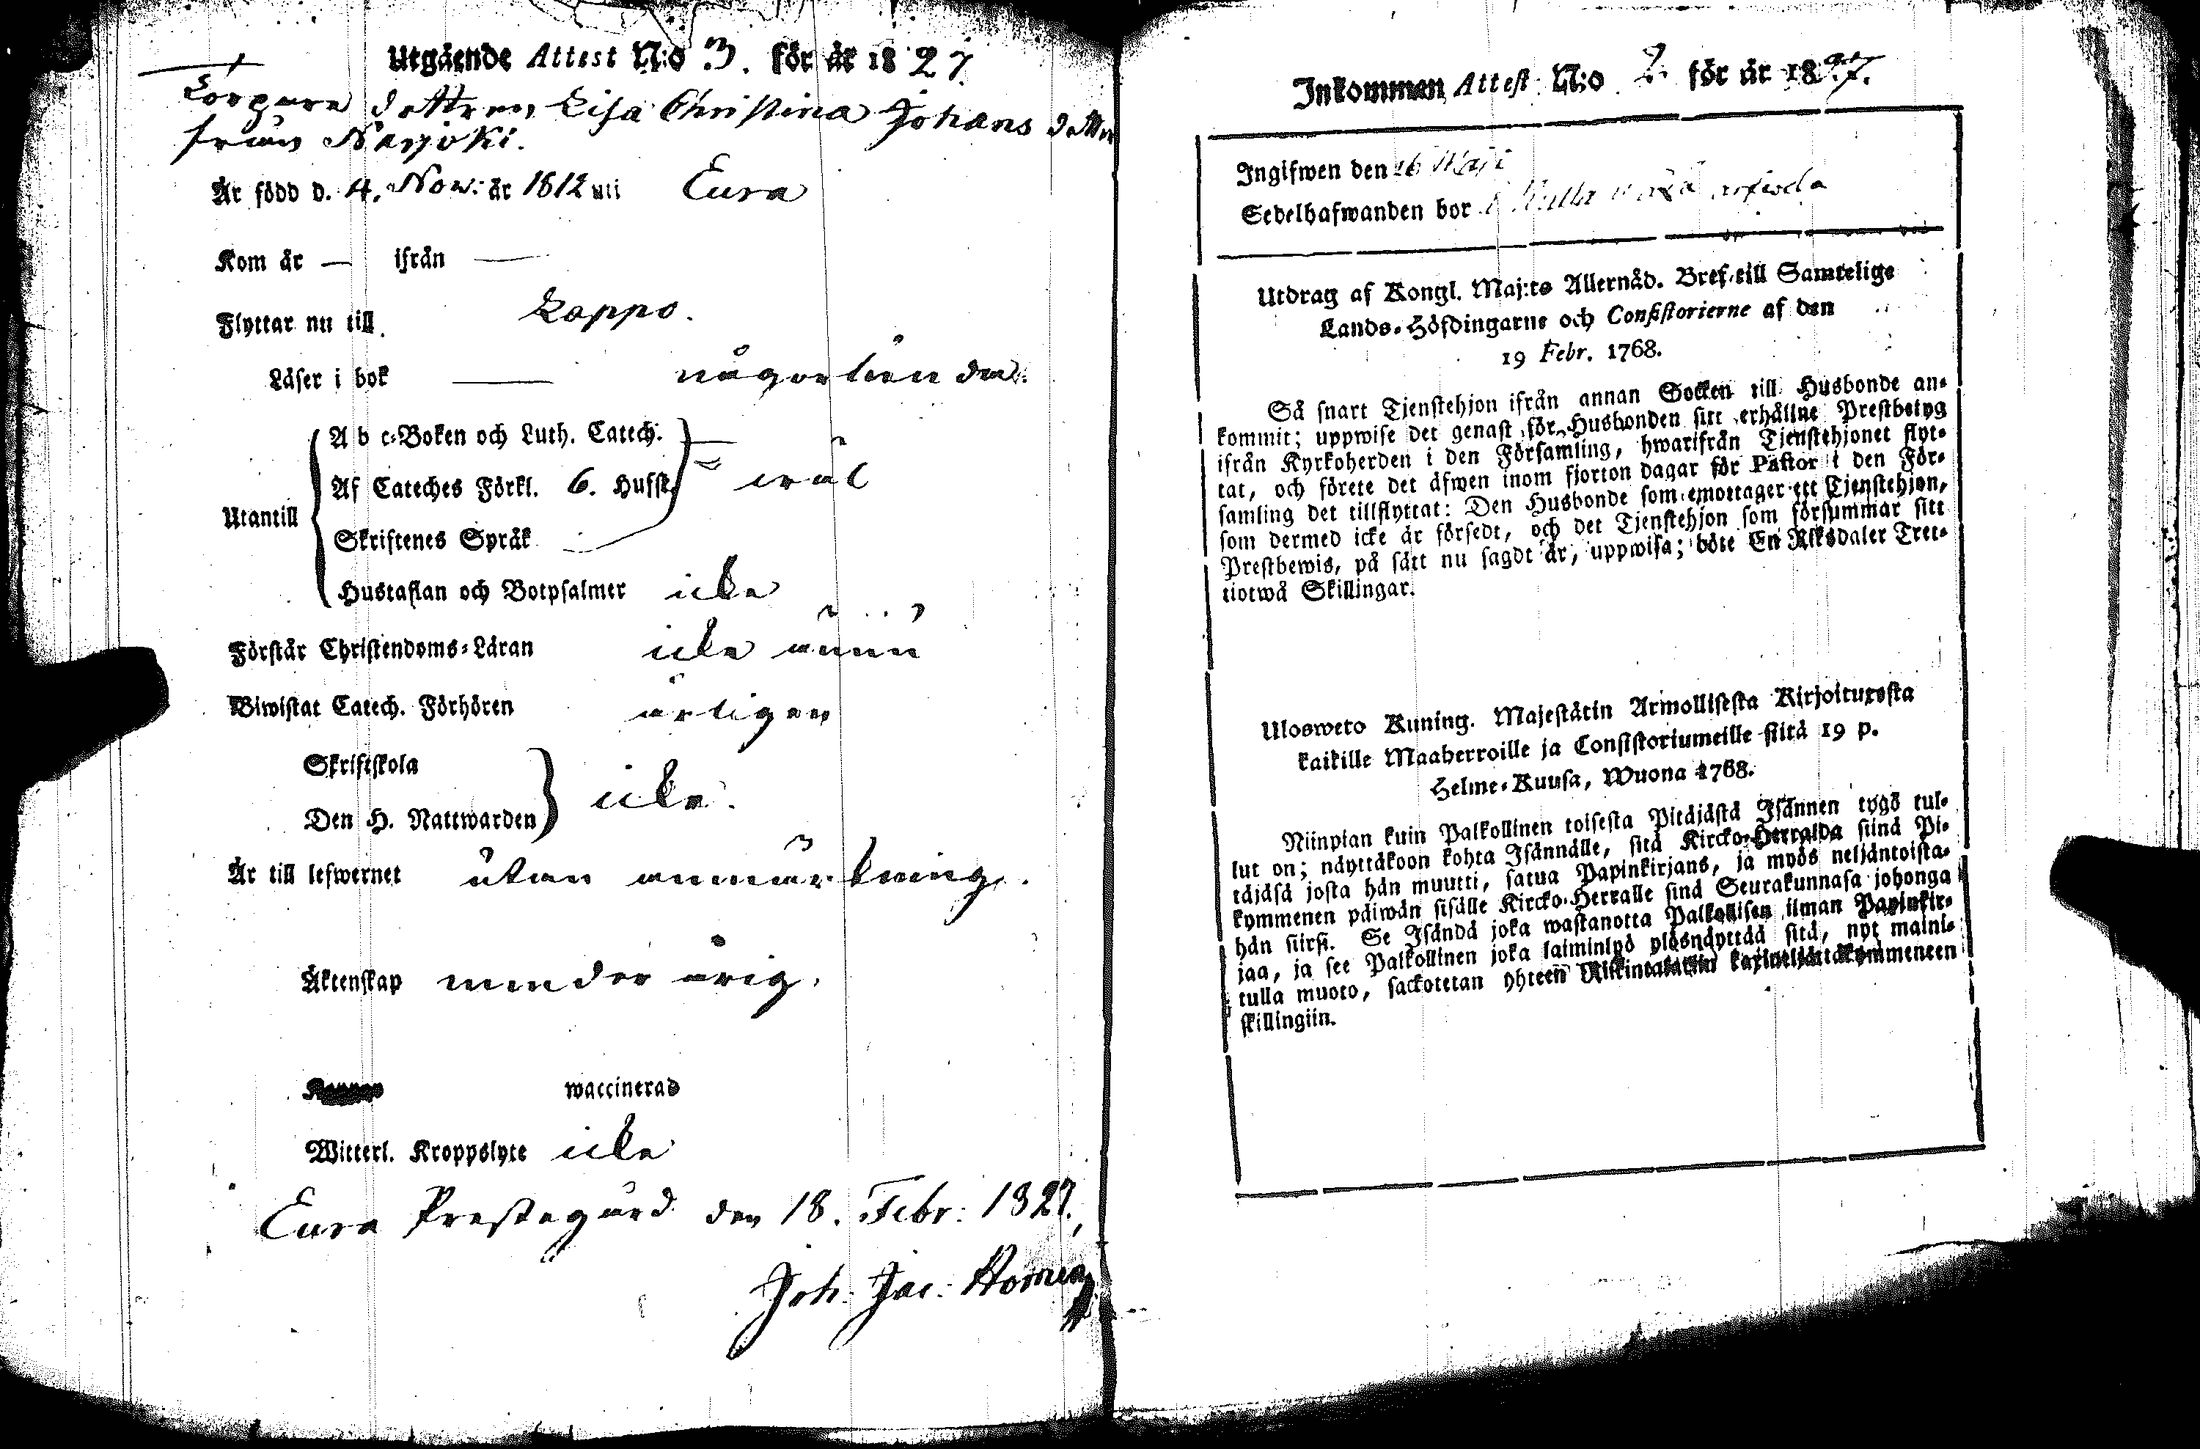 Utgående Attest N:o 3. för år 1827
Torpare dottren Lisa Christina Johans dotter
från Naryoki.
Är född d. 4. Nov: år 1812 uti Eura
Kom år — ifrån —
Flyttar nu till Lappo.
Läser i bok — någorlunda.
A b c-Boken och Luth. Catech.
Af Cateches Förkl. 6. Hufst. wäl
Utantill
Skriftenes Språk
Hustaflan och Botpsalmer icke
Förstår Christendoms-Läran icke ännu
Biwistat Catech. Förhören årligen
Skriftskola
Den H. Nattwarden icke.
Är till lefwernet utan anmärkning.
Äktenskap minder årig.
waccinerad
Witterl. Kroppslyte icke
Eura Prestegård den 18. Febr: 1827.
Joh. Jac.
Inkommen Attest N:o 2. för år 1827.
Ingifwen den 26 Maji
Sedelhafwanden bor
Utdrag af Kongl. Maj:ts Allernåd. Bref till Samtelige
Lands-Höfdingarne och Consistorierne af den
19 Febr. 1768.
Så snart Tjenstehjon ifrån annan Socken till Husbonde an-
kommit; uppwise det genast för Husbonden sitt erhållne Prestbetyg
ifrån Kyrkoherden i den Församling, hwarifrån Tjenstehjonet flyt-
tat, och förete det äfwen inom fjorton dagar för Pastor i den För-
samling det tillflyttat: Den Husbonde som emottager ett Tjenstehjon,
som dermed icke är försedt, och det Tjenstehjon som försummar sitt
Prestbewis, på sätt nu sagdt är, uppwisa; böte En Riksdaler Tret-
tiotwå Skillingar.
Ulosweto Kuning. Majestätin Armollisesta Kirjoituxesta
kaikille Maaherroille ja Consistoriumeille siitä 19 p.
Helme-Kuusa, Wuona 1768.
Niinpian kuin Palkollinen toisesta Pitäjästä Isännen tygö tul-
lut on; näyttäkoon kohta Isännälle, sitä Kircko-Herralda siinä Pi-
täjäsä josta hän muutti, satua Papinkirjans, ja myös neljäntoista-
kymmenen päiwän sisälle Kircko-Herralle siinä Seurakunnasa johonga
hän siirsi. Se Isändä joka wastanotta Palkollisen ilman Papinkir-
jaa, ja see Palkollinen joka laiminlyö ylösnäyttää sitä, nyt maini-
tulla muoto, sackotetan yhteen Riikintalariin kaxineljättäkymmeneen
skillingiin.